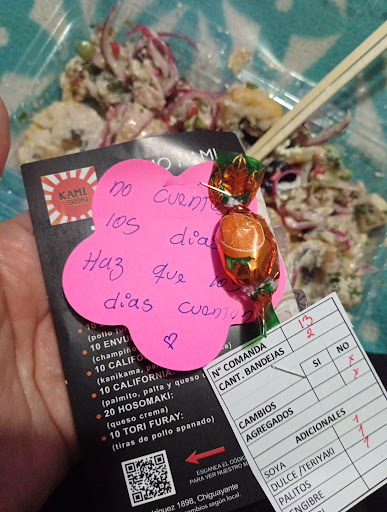 KAMI
SUSHI
no cuentes
los días
Haz que los
días cuenten
10 ENVU
(champiñ
10 CALIFO
(kanikama, pal
10 CALIFORNIA
(palmito, palta y queso
20 HOSOMAKI:
(queso crema)
10 TORI FURAY:
(tiras de pollo apanado)
ESCANEA EL CÓDIG
PARA VER NUESTRO M
1898, Chiguayante
cambios según local.
N° COMANDA 13
CANT. BANDEJAS 2
SI NO
CAMBIOS x
AGREGADOS x
ADICIONALES
SOYA 1
DULCE /TERIYAKI 1
PALITOS 1
ENGIBRE